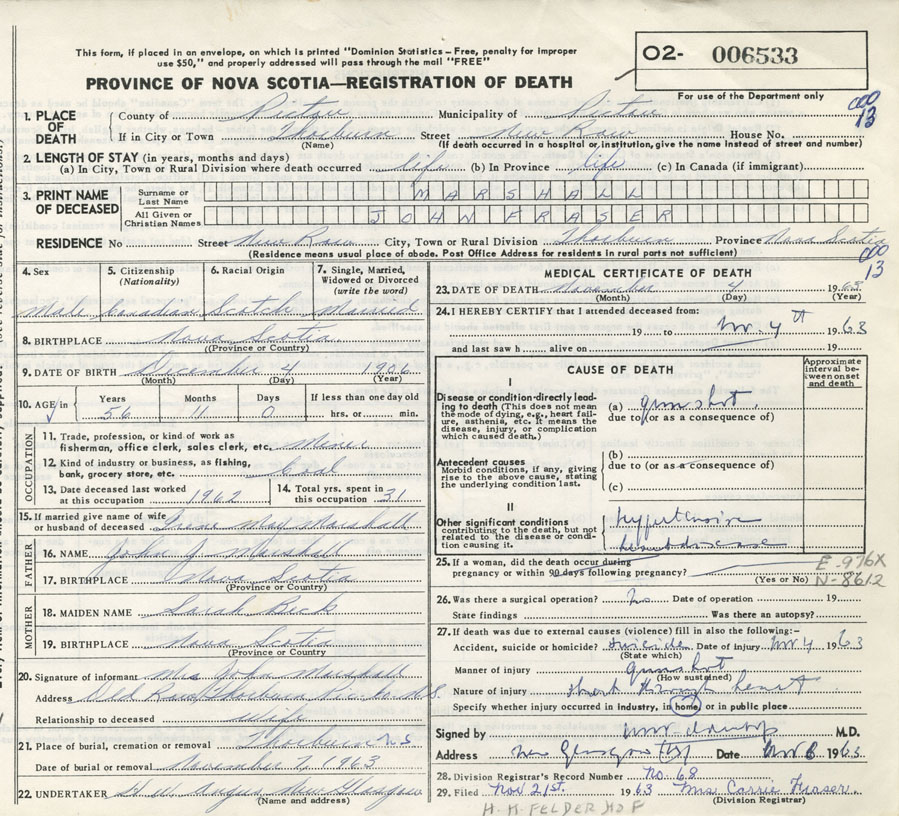 This form, if placed in an envelope, on which is printed "Dominion Statistics – Free, penalty for improper
use $50," and properly addressed will pass through the mail "FREE"
PROVINCE OF NOVA SCOTIA—REGISTRATION OF DEATH
O2- 006533
For use of the Department only
000
13
1. PLACE OF DEATH County of Pictou Municipality of Pictou
If in City or Town Thorburn Street New Row House No.
(Name) (If death occurred in a hospital or institution, give the name instead of street and number)
2. LENGTH OF STAY (in years, months and days)
(a) In City, Town or Rural Division where death occurred life (b) In Province life (c) In Canada (if immigrant)
3. PRINT NAME OF DECEASED
Surname or Last Name MARSHALL
All Given or Christian Names JOHN FRASER
RESIDENCE No Street New Row City, Town or Rural Division Thorburn Province Nova Scotia
(Residence means usual place of abode. Post Office Address for residents in rural parts not sufficient)
000
13
4. Sex 5. Citizenship (Nationality) 6. Racial Origin 7. Single, Married, Widowed or Divorced (write the word)
Male Canadian Scotch Married
8. BIRTHPLACE Nova Scotia
(Province or Country)
9. DATE OF BIRTH December 4 1906
(Month) (Day) (Year)
10. AGE in Years Months Days If less than one day old
56 11 0 hrs. or min.
OCCUPATION
11. Trade, profession, or kind of work as fisherman, office clerk, sales clerk, etc. Miner
12. Kind of industry or business, as fishing, bank, grocery store, etc. Coal
13. Date deceased last worked at this occupation 1962 14. Total yrs. spent in this occupation 31
15. If married give name of wife or husband of deceased Irene May Marshall
FATHER
16. NAME John J. Marshall
17. BIRTHPLACE Nova Scotia
(Province or Country)
MOTHER
18. MAIDEN NAME Sarah
19. BIRTHPLACE Nova Scotia
(Province or Country)
20. Signature of informant Mrs John Marshall
Address Old Row Thorburn N.S.
Relationship to deceased Wife
21. Place of burial, cremation or removal Thorburn NS
Date of burial or removal November 7, 1963
22. UNDERTAKER H. W. Angus New Glasgow
(Name and address)
MEDICAL CERTIFICATE OF DEATH
23. DATE OF DEATH November 4 1963
(Month) (Day) (Year)
24. I HEREBY CERTIFY that I attended deceased from:
19 to Nov. 4th 1963
and last saw h alive on 19
CAUSE OF DEATH
Approximate interval between onset and death
I
Disease or condition directly leading to death (This does not mean the mode of dying, e.g., heart failure, asthenia, etc. It means the disease, injury, or complication which caused death.)
(a) gunshot
due to (or as a consequence of)
Antecedent causes
Morbid conditions, if any, giving rise to the above cause, stating the underlying condition last.
(b)
due to (or as a consequence of)
(c)
II
Other significant conditions contributing to the death, but not related to the disease or condition causing it.
hypertensive
heart disease
25. If a woman, did the death occur during
pregnancy or within 90 days following pregnancy?
(Yes or No)
E-976X
N-8612
26. Was there a surgical operation? No Date of operation 19
State findings Was there an autopsy?
27. If death was due to external causes (violence) fill in also the following:–
Accident, suicide or homicide? Suicide Date of injury Nov 4 1963
(State which)
Manner of injury gunshot
(How sustained)
Nature of injury through heart
Specify whether injury occurred in industry, in home, or in public place
Signed by M.D.
Address New Glasgow Date Nov 6 1963
28. Division Registrar's Record Number No. 68
29. Filed Nov 21st 1963 Mrs Carrie Fraser
(Division Registrar)